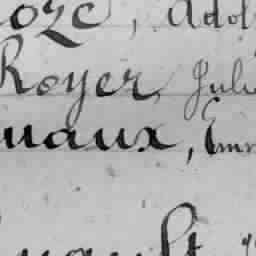 oze, Adol
Royer, Juli
uaux, Emm
uault